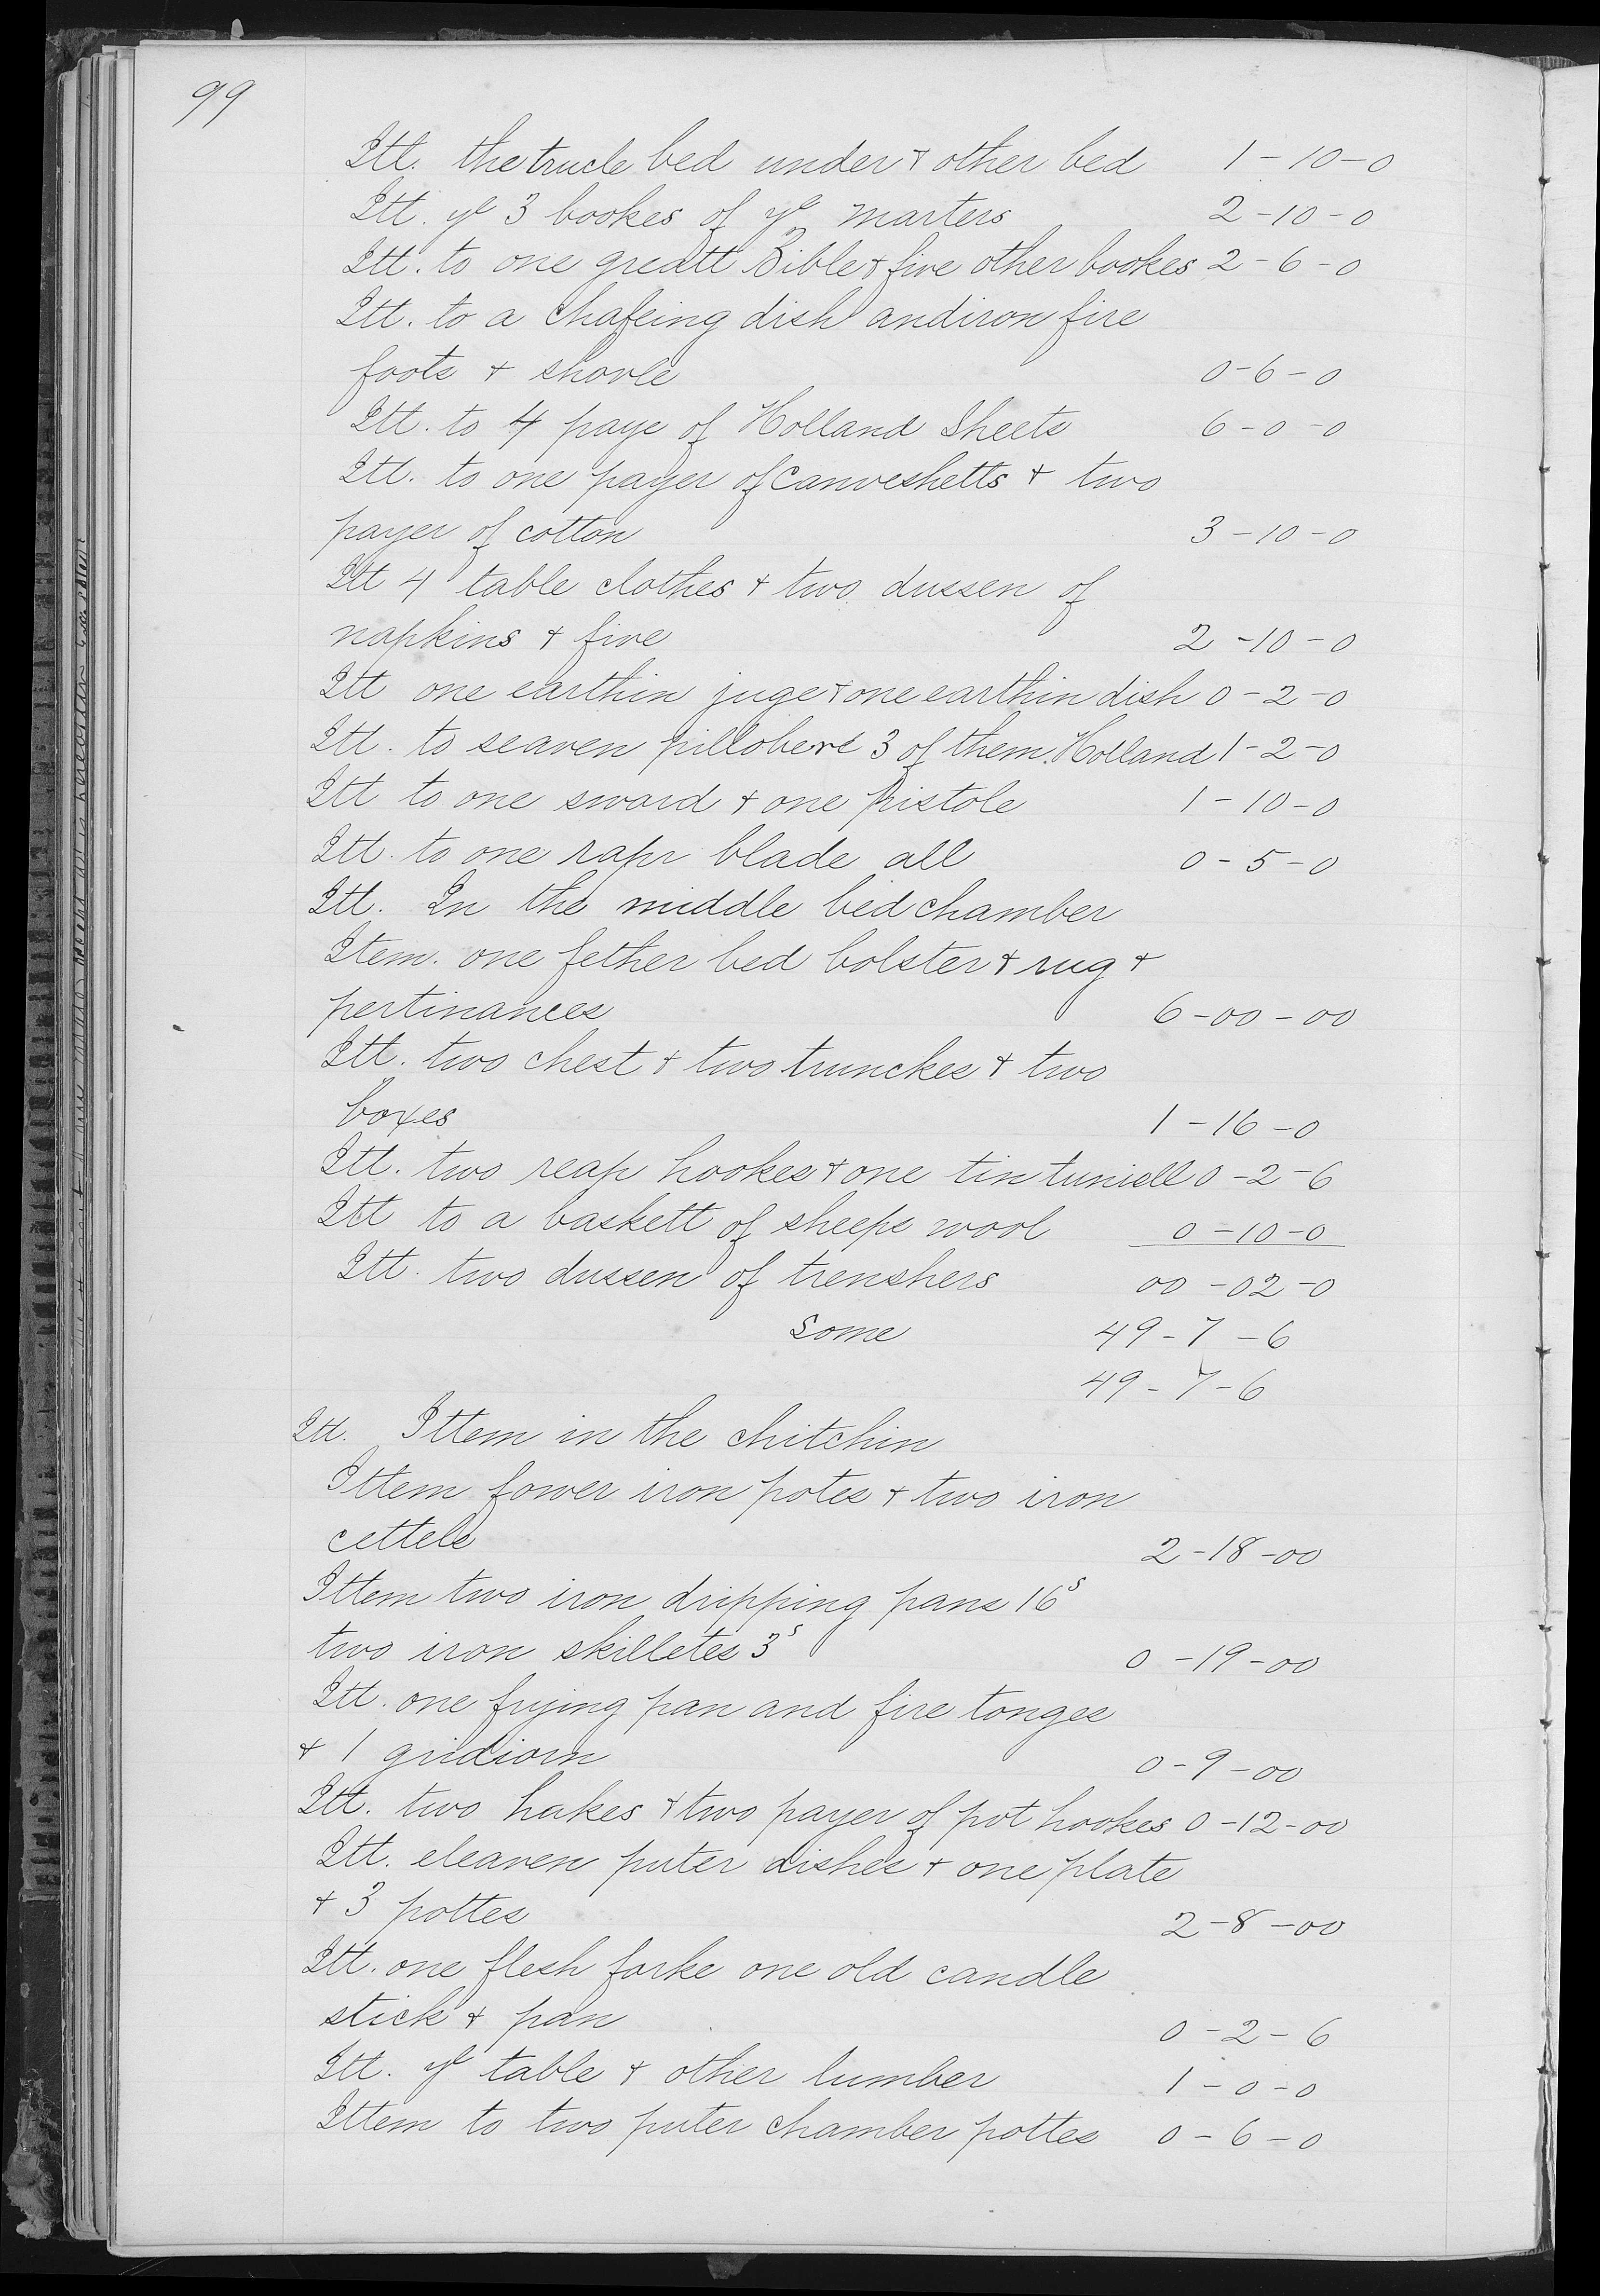 99
Itt. the trucle bed under & other bed 1-10-0
Itt. ye 3 bookes of ye marters 2-10-0
Itt. to one greatt Bible & five other bookes 2-6-0
Itt. to a Chafeing dish andiron fire
foots & shovle 0-6-0
Itt. to 4 paye of Holland Sheets 6-0-0
Itt. to one payer of canveshetts & two
payer of cotton 3-10-0
Itt 4 table clothes & two dussen of
napkins & five 2-10-0
Itt one earthin juge & one earthin dish 0-2-0
Itt. to seaven pilloberd 3 of them Holland 1-2-0
Itt to one sword & one pistole 1-10-0
Itt. to one rapr blade all 0-5-0
Itt. In the middle bed chamber
Item. one fether bed bolster & rug &
pertinances 6-00-00
Itt. two chest & two trunckes & two
boxes 1-16-0
Itt. two reap hookes & one tin tuniell 0-2-6
Itt to a baskett of sheeps wool 0-10-0
Itt. two dussen of trenshers 00-02-0
Some 49-7-6
49-7-6
Itt. Ittem in the chitchin
Ittem fower iron potes & two iron
cettels 2-18-00
Ittem two iron dripping pans 16s
two iron skilletes 3s 0-19-00
Itt. one frying pan and fire tonges
& 1 gridiorn 0-9-00
Itt. two hakes & two payer of pot hookes 0-12-00
Itt. eleaven puter dishes & one plate
& 3 pottes 2-8-00
Itt. one flesh forke one old candle
stick & pan 0-2-6
Itt. ye table & other lumber 1-0-0
Ittem to two puter chamber pottes 0-6-0